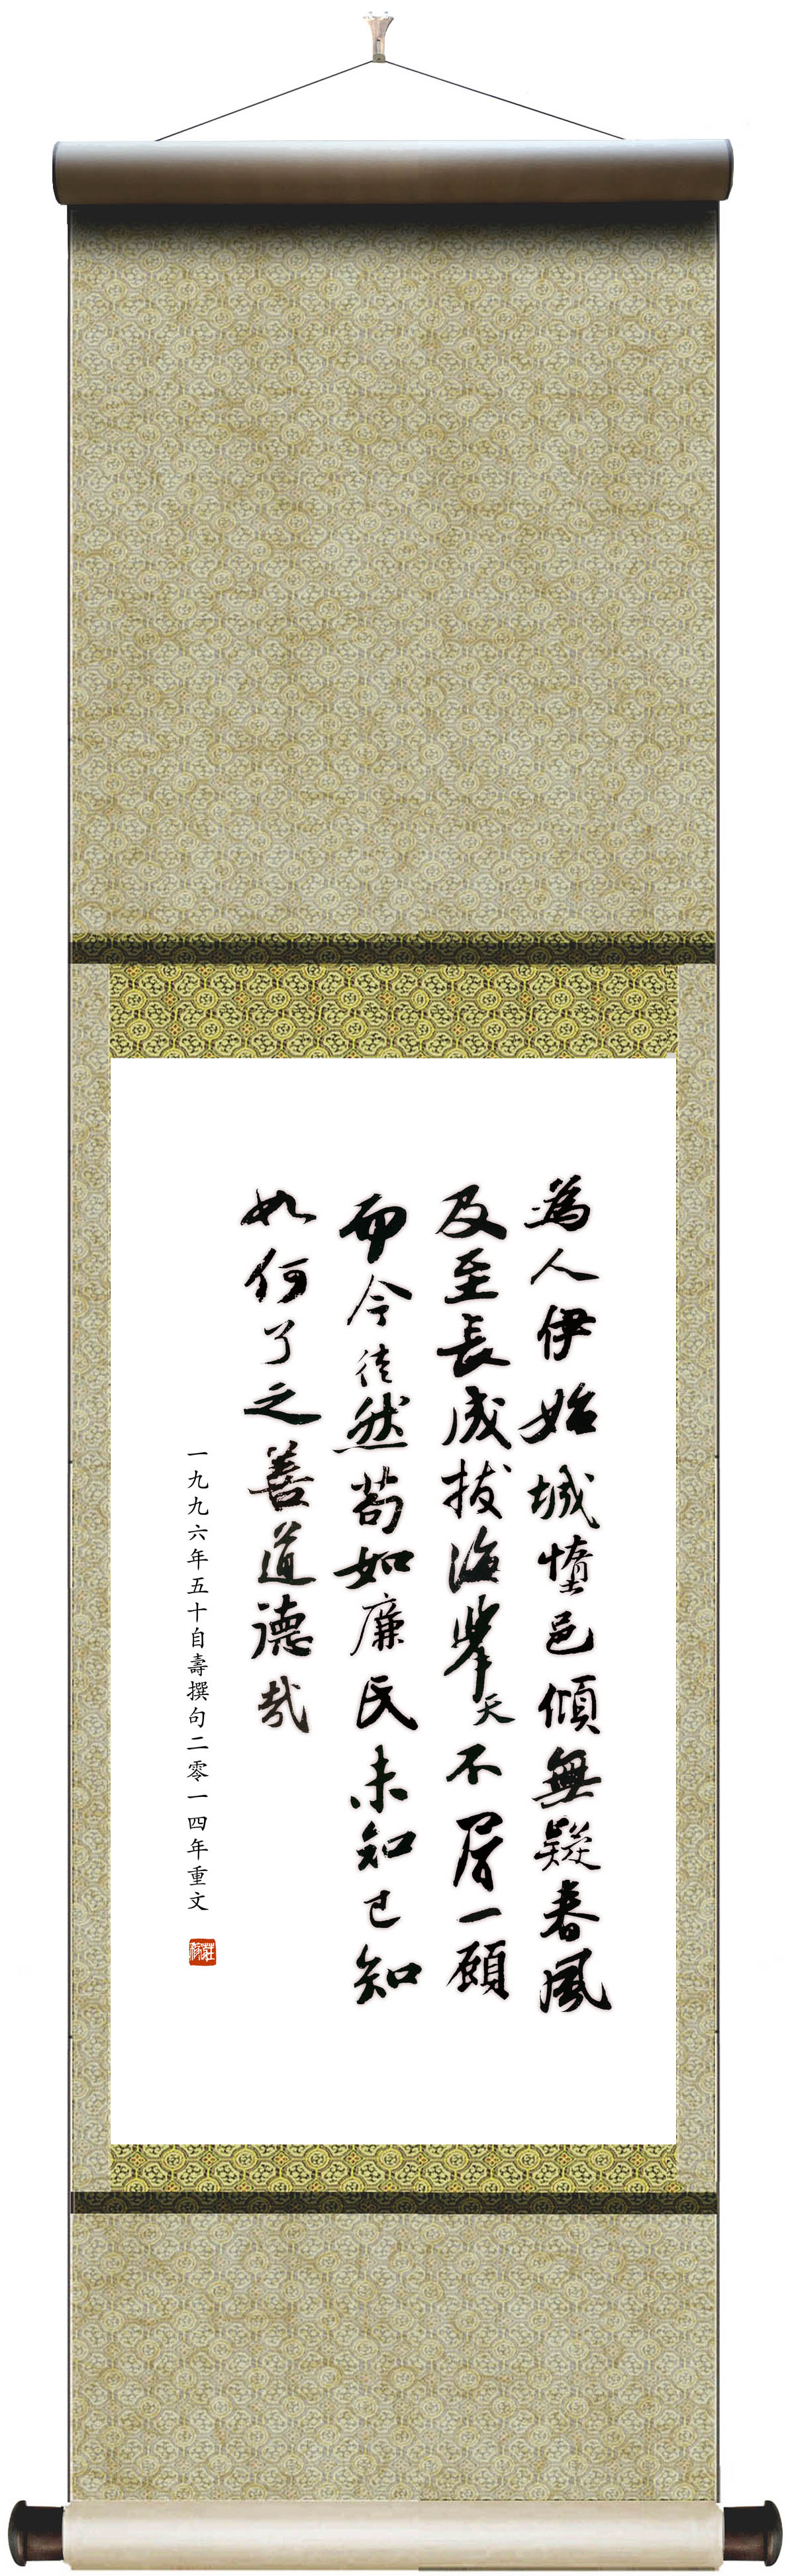 為人伊始城墮邑傾無疑春風
及至長成拔海擎天不屑一顧
而今徒然苟如廉氏未知已知
如何了之善道德哉
一九九六年五十自壽撰句二零一四年重文